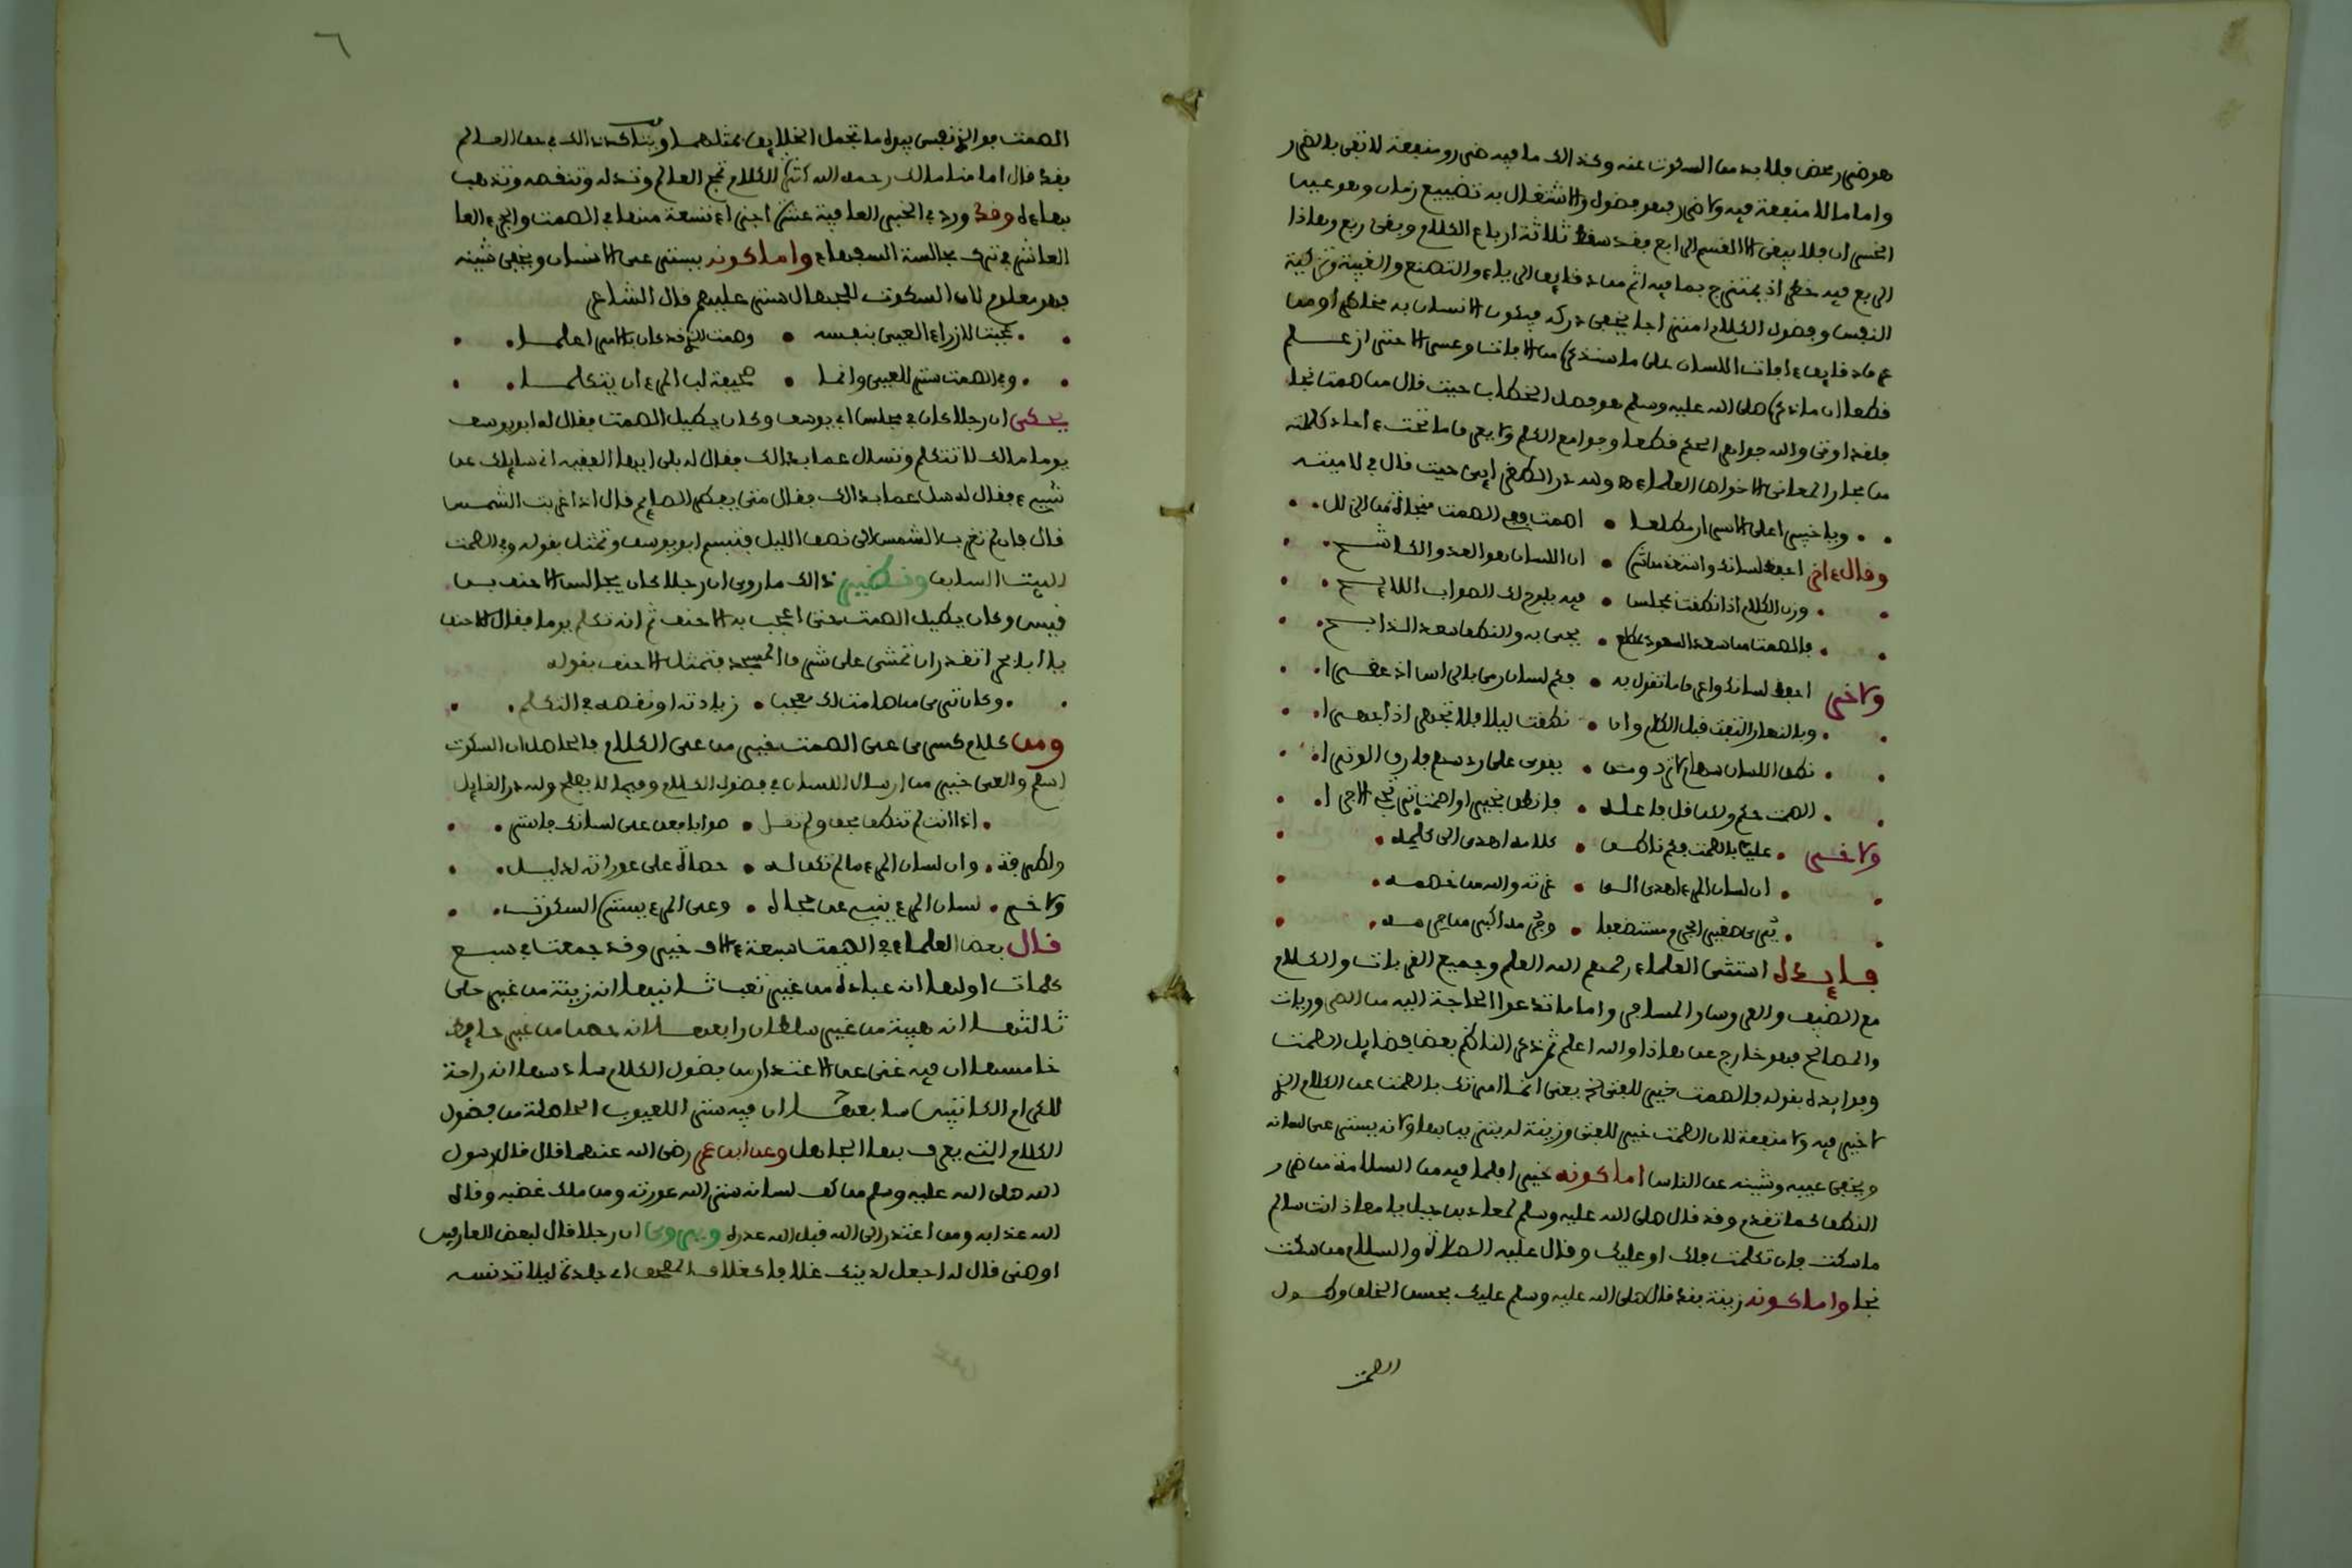 هو ضرر محض فلا بد من السكوت عنه وكذالك ما فيه ضرر ومنفعة لا تفي بالضرر
واما ما لا منفعة فيه ولا ضرر فهو فضول والاشتغال به تضييع زمان وهو عين
الخسران فلا يبقى الا القسم الرابع فقد سقط ثلاثة ارباع الكلام وبقى ربع وهاذا
الربع فيه خطر اذ يمتزج بما فيه اثم من دقايق الرياء والتصنع والغيبة وتزكية
النفس وفضول الكلام امتزاجا يخفى دركه فيكون الانسان به مخاطرا ومن
عرف دقايق ءافات اللسان على ما سنذكر من الافات وعسى الاحتراز علم
قطعا ان ما ذكر صلى الله عليه وسلم هو فصل الخطاب حيث قال من صمت نجا
فلقد اوتى والله جواهر الحكم قطعا وجوامع الكلم ولا يعرف ما تحت ءاحاد كلمته
من بحار المعانى الا خواص العلماء ولله در الطغراءى حيث قال في لاميته
ويا خبيرا على الاسرار مطلعا • اصمت ففى الصمت منجاة من الزلل
وقال ءاخر احفظ لسانك واستعذ من شره • ان اللسان هو العدو الكاشح
وزن الكلام اذا نطقت بمجلس • فيه يلوح لك الصواب اللايح
فالصمت من سعد السعود بمطلع • يحيى به والنطق سعد الذابح
ولاخر احفظ لسانك واعرف ما تقول به • فكم لسان رمى بالراس اذ عثرا
وبالنهار التفت قبل الكلام وان • نطقت ليلا فلا تجهر اذا
نطق اللسان سهام لا ترد ومن • يقوى على رد سهم فارق الوترا
الصمت حكم ولاكن قل فاعله • فانطق بخير او اصمت
ولاخر عليك بالصمت فكم ناطق • كلامه ادى الى كلمه
ان لسان المرء اهدى الى • غرته والله من خصمه
يرى صغير الجرم مستضعفا • وجرمه اكبر من جرمه
فايدة استثنى العلماء رحمهم الله العلم وجميع القربات والكلام
مع الضيف والعروس والمسافر واما ما تدعوا الحاجة اليه من الضروريات
والمصالح فهو خارج عن هاذا والله اعلم ثم ذكر الناظم بعض فضايل الصمت
وفوايده بقوله فالصمت خير للفتى الخ يعنى انما امرتك بالصمت عن الكلام الذي
لا خير فيه ولا منفعة لان الصمت خير للفتى وزينة له بين ولانه يستر عن لسانه
ويخفى عيبه وشينه عن الناس اما كونه خيرا فلما فيه من السلامة من ضرر
النطق كما تقدم وقد قال صلى الله عليه وسلم لمعاذ بن جبل يا معاذ انت سالم
ما سكت فان تكلمت فلك او عليك وقال عليه الصلاة والسلام من سكت
نجا واما كونه زينة فقد قال صلى الله عليه وسلم عليك بحسن الخلق وطول
الصمت
٦
الصمت فوالذي نفسي بيده ما تجمل الخلايق بمثلهما ويتاكد ذالك في حق العالم
فقد قال امامنا مالك رحمه الله كثرة الكلام تمج العالم وتذله وتنقصه وتذهب
بهاءه وقد ورد في الخبر العافية عشرة اجزاء تسعة منها في الصمت والجزء العا
العاشر في ترك مجالسة السفهاء واما كونه يستر عن الانسان ويخفى شينه
فهو معلوم لان السكوت للجهال ستر عليهم قال الشاعر
عجبت لازراء العيى بنفسه • وصمت الذي قد كان بالامر اعلما
وفى الصمت ستر للعيى وانما • صحيفة لب المرء ان يتكلما
يحكى ان رجلا كان في مجلس ابي يوسف وكان يطيل الصمت فقال له ابو يوسف
يوما مالك لا تتكلم وتسال عما بدالك فقال له بلى ايها الفقيه انى سايلك عن
شيىء فقال له سل عما بدالك فقال متى يفطر الصايم قال اذا غربت الشمس
قال فان لم تغرب الشمس الى نصف الليل فتبسم ابو يوسف وتمثل بقوله وفى الصمت
البيت السابق ونظير ذالك ما روى ان رجلا كان يجالس الاحنف بن
قيس وكان يطيل الصمت حتى اعجب به الاحنف ثم انه تكلم يوما فقال للاحنف
يا ابا بحر اتقدر ان تمشى على شرف المسجد فتمثل الاحنف بقوله
وكاين ترى من صامت لك معجب • زيادته او نقصه في التكلم
ومن كلام كسرى عى الصمت خير من عى الكلام فالحاصل ان السكوت
اسلم والعى خير من ارسال اللسان في فضول الكلام وفيما لا يصلح ولله در القايل
اذا انت لم تنطق بحق ولم تقل • صوابا فعد على لسانك فاستر
ولطرفة • وان لسان المرء ما لم تكن له • حصاة على عوراته لدليل
ولاخر • لسان المرء ينبى عن حجاه • وعى المرء يستره السكوت
قال بعض العلماء في الصمت سبعة ءالاف خير وقد جمعت في سبع
كلمات اولها انه عبادة من غير تعب ثانيها انه زينة من غير حلى
ثالثها انه هيبة من غير سلطان رابعها انه حصن من غير حافظ
خامسها ان فيه غنى عن الاعتذار من فضول الكلام سادسها انه راحة
للكرام الكاتبين سابعها ان فيه ستر اللعيوب الحاصلة من فضول
الكلام التى يعرف بها الجاهل وعن ابن عمر رضى الله عنهما قال قال رسول
الله صلى الله عليه وسلم من كف لسانه ستر الله عورته ومن ملك غضبه وقاه
الله عذابه ومن اعتذر الى الله قبل الله عذره ويروى ان رجلا قال لبعض العارفين
اوصنى قال له اجعل لدينك غلافا كغلاف المصحف اى جلدة ليلا تدنسه